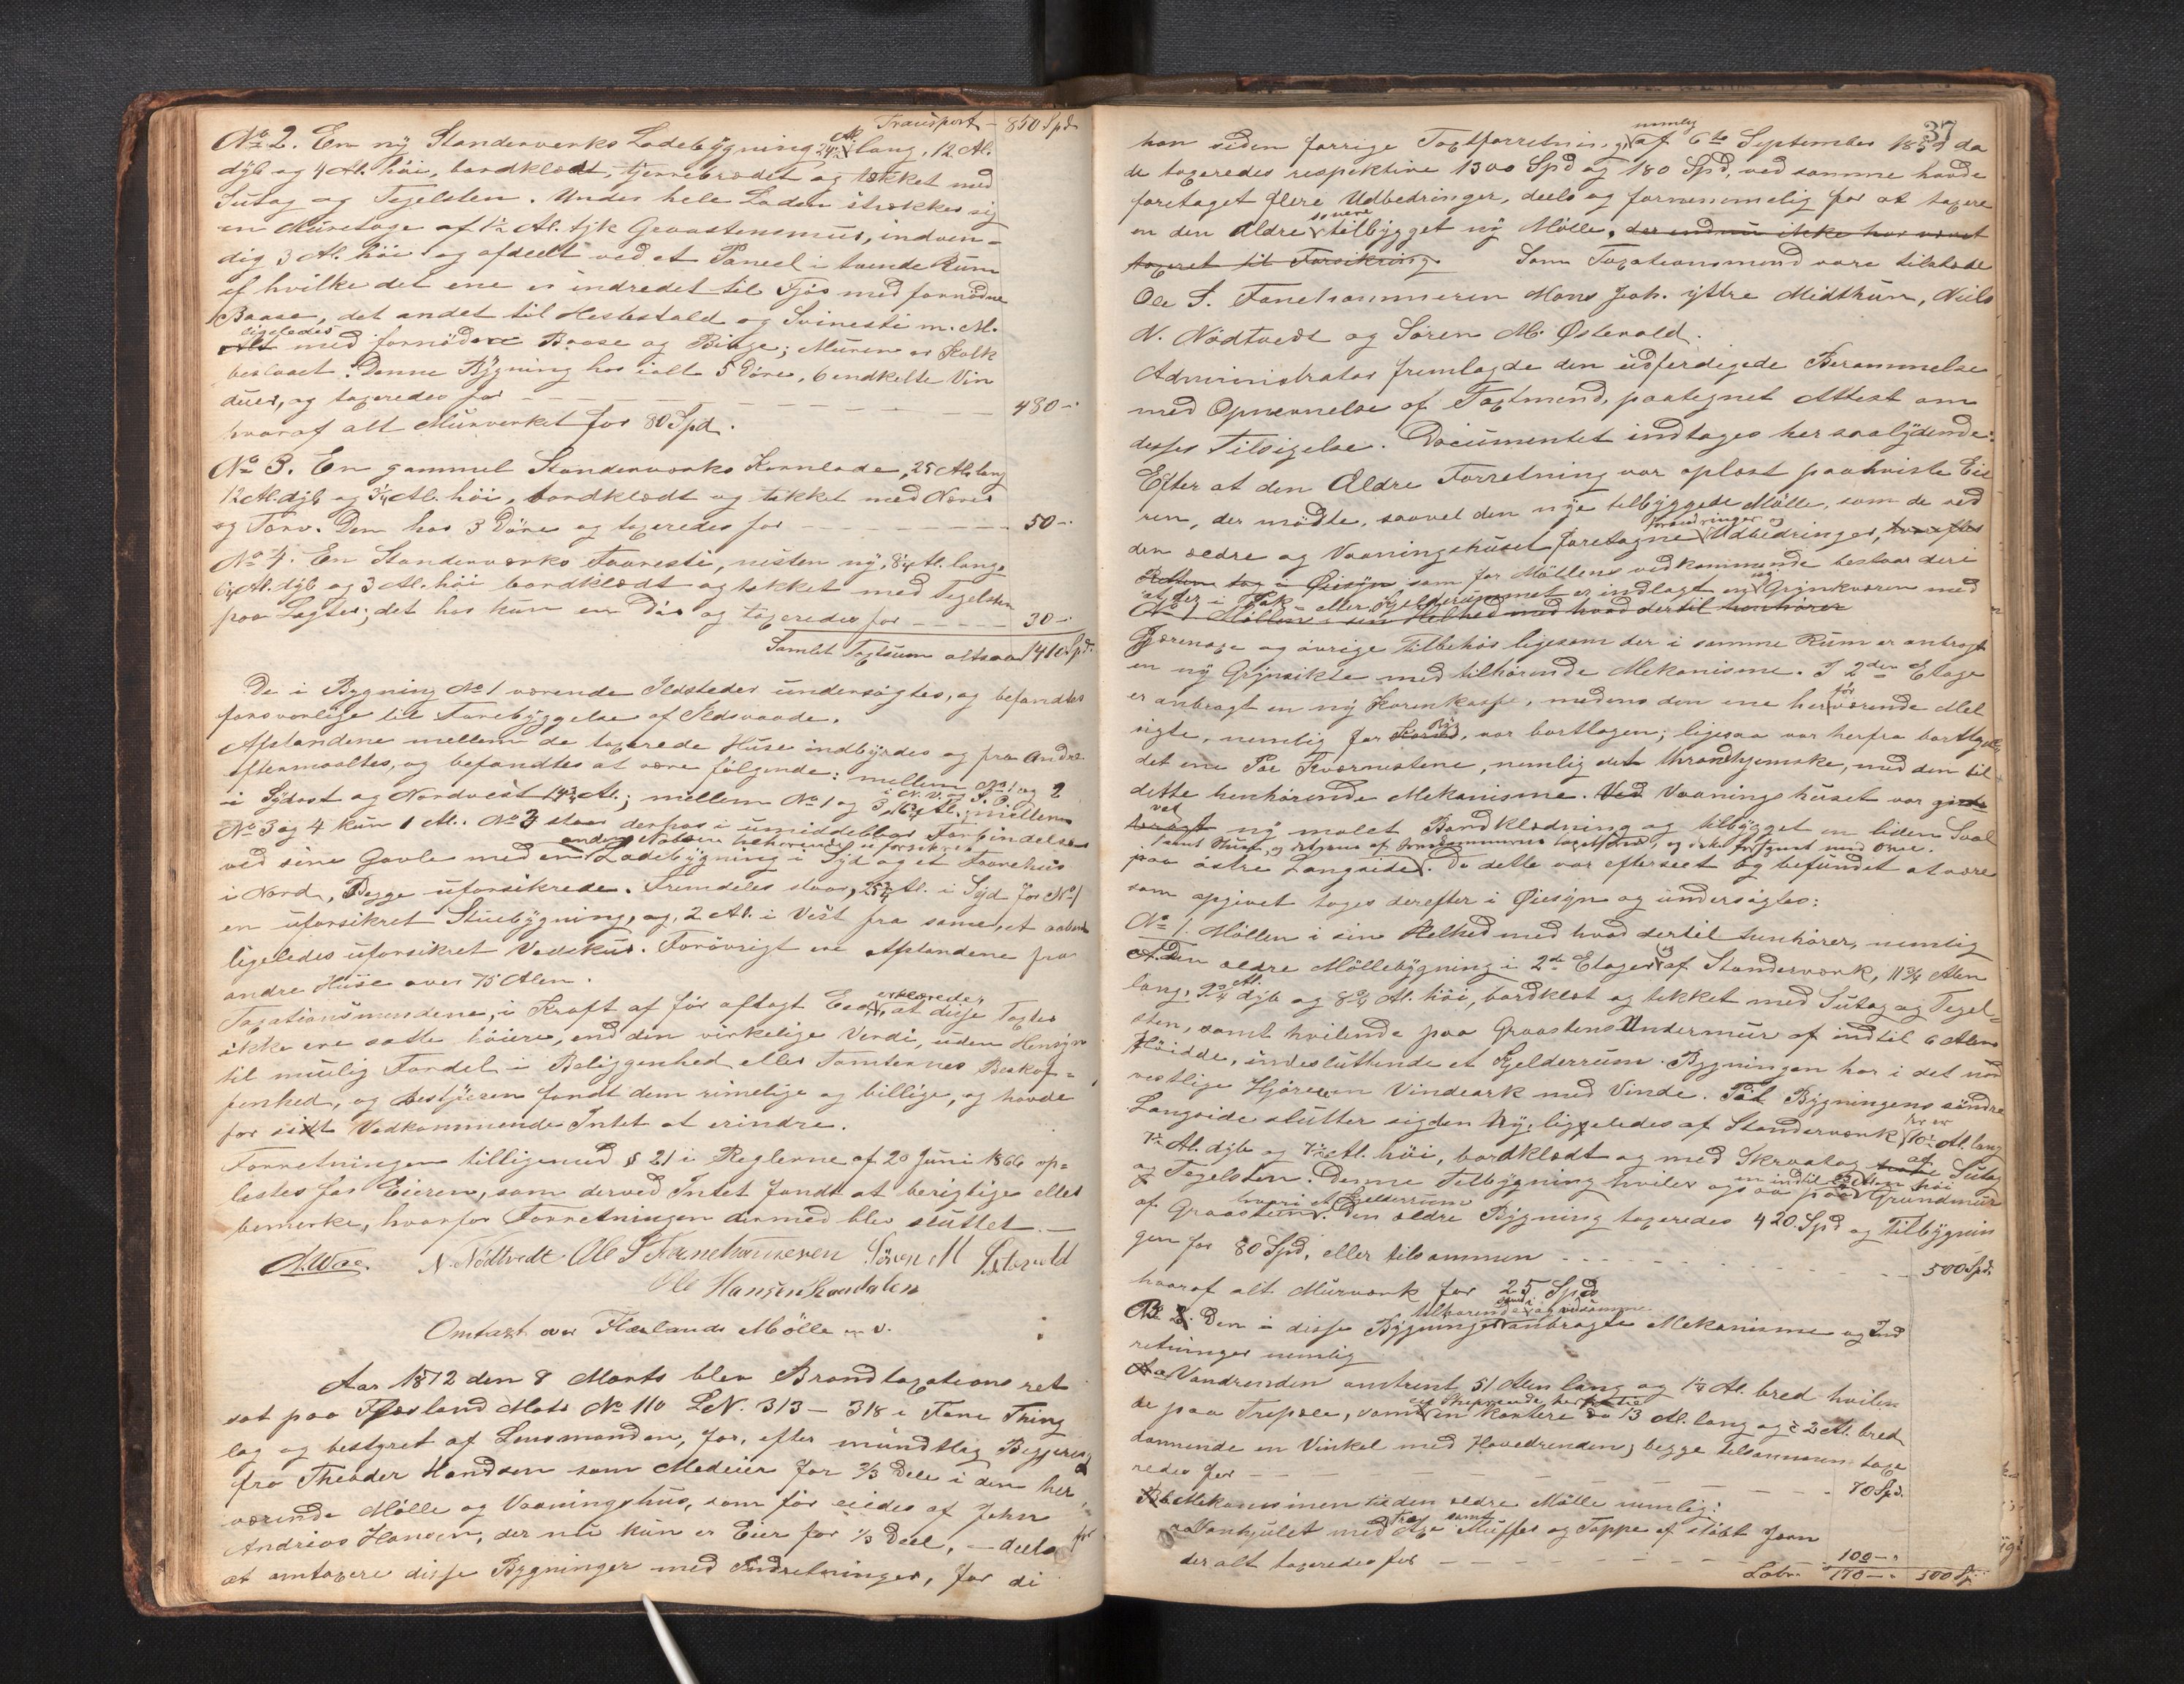 Transport - 850 Spd.
No 2. En ny Standerverks Ladebygning 24 Al. lang, 12 Al.
dyb og 4 Al. höi, bordklædt, tjerrebrædet og tækket med
Sutag og Tegelsten. Under hele Laden strækker sig
en Muretage af 1½ Al. tyk Graastensmur, indven-
dig 3 Al. höi og afdeelt ved et Paneel i tvende Rum
af hvilke det ene er indredet til Fjös med fornödne
Baase, det andet til Hestestald og Svinesti m. M.
Alt ligeledes med fornödne Baase og Binge; Muren er Kalk
beslaaet. Denne Bygning har ialt 5 Döre, 6 endkelte Vin
duer, og taxeredes for - - - 480 -
hvoraf alt Murverket for 80 Spd.
No 3. En gammel Standerværks Kornlade, 25 Al. lang
12 Al. dyb og 3¼ Al. höi, bordklædt og tækket med Næver
og Torv. Den har 3 Döre og taxeredes for - - - 50 -
No 4. En Standerværks Faaresti, næsten ny, 8¼ Al. lang
6¼ Al. dyb og 3 Al. höi bordklædt og tækket med Tegelsten
paa Lægter; det har kun en Dör og taxeredes for - - - 30 -
Samlet Taxtsum altsaa 1410 Spd.
De i Bygning No 1 værende Ildsteder undersögtes, og befandtes
forsvarlige til Forebyggelse af Ildsvaade.
Afstandene mellem de taxerede Huse indbyrdes og fra andre
eftermaaltes, og befandtes at være fölgende: mellem No 1 og 2
i Sydost og Nordvest 14¾ Al.; mellem No 1 og 3 i N. V. og S. O. 16¾ Al.; mellem
No 3 og 4 kun 1 Al. No 3 staar derhos i umiddelbar Forbindelse
ved sine Gavle med en anden Naboen tilhörende uforsikret Ladebygning i Syd og et Faarehus
i Nord, Begge uforsikrede. Fremdeles staar, 25¾ Al. i Syd for No 1
en uforsikret Stuebygning, og, 2 Al. i Vest fra samme, et aabent
ligeledes uforsikret Vedskur. Forövrigt ere Afstandene fra
andre Huse over 75 Alen.
Taxationsmændene, i Kraft af för aflagt Eed, erklærede, at disse Taxter
ikke ere satte höiere, end den virkelige Verdi, uden Hensyn
til muulig Fordel i Beliggenhed eller Tomternes Beskaf-
fenhed, og Bestyreren fandt dem rimelige og billige, og havde
for sit Vedkommende Intet at erindre.
Forretningen tilligemed § 21 i Reglerne af 20 Juni 1866 op-
læstes for Eieren, som derved Intet fandt at berigtige eller
bemerke, hvorfor Forretningen dermed blev sluttet. -
N. Nödtvedt Ole S Fanehammeren Sören M Östervold
Ole Hansen
Omtaxt over Flæslands Mölle m. v.
Aar 1872 den 8 Marts blev Brandtaxations ret
sat paa Flæsland Matr No 110 L.N. 313 - 318 i Fane Thing
lag og bestyret af Lensmanden, for, efter mundtlig Begjering
fra Theodor Handsen som Medeier for 2/3 Dele i den her
værende Mölle og Vaaningshus, som för eiedes af John
Andreas Hansen, der nu kun er Eier for 1/3 Deel, - deels for
at omtaxere disse Bygninger med Indretninger, for di
37
han siden forrige Taxtforretning, nemlig af 6te September 18 da
de taxeredes respektive 1300 Spd og 180 Spd, ved samme havde
foretaget flere Udbedringer, deels og fornemmelig for at taxere
en den ældre senere tilbygget ny Mölle, der endnu ikke har været
taxeret til Forsikring. Som Taxationsmænd vare tilstede
Ole S. Fanehammeren Mons Joh. yttre Midthun, Niels
N. Nödtvedt og Sören M. Östervold.
Administrator fremlagde den udferdigede Berammelse
med Opnævnelse af Taxtmænd, paategnet Attest om
desses Tilsigelse. Documentet indtages her saalydende:
Efter at den Ældre Forretning var oplæst paahviste Eie
ren, der mödte, saavel den nye tilbyggede Mölle, som de ved
den ældre og Vaaningshuset foretagne Forandringer og Udbedringer, hvorefter
Retten tog i Öiesyn som for Möllens vedkommende bestaar deri
at der i Pak- eller Kjelderrummet er indlagt en ny Grynkværn med
No 1 Möllen i sin Helhed med hvad dertil henhörer
Jernaxe og övrige Tilbehör ligesom der i samme Rum er anbragt
en ny Grynsikte med tilhörende Mekanisme. I 2den Etage
er anbragt en ny Kornkasse, medens den ene her för værende Mel
sigte, nemlig for Rug, var borttagen; ligesaa var herfra borttaget
det ene Par Kværnstene, nemlig det throndhjemske, med den til
dette henhörende Mekanisme. Ved Vaaningshuset var
ny malet Bordklædning og tilbygget en liden Sval
paa östre Langside. Da dette var efterseet og befundet at være
som opgivet toges derefter i Öiesyn og undersögtes:
No 1. Möllen i sin Helhed med hvad dertil henhörer, nemlig
A. Den ældre Möllebygning i 2de Etager og af Standerværk, 11¾ Alen
lang, 9¾ Al. dyb og 8¾ Al. höi, bordklæt og tækket med Sutag og Tegel-
sten, samt hvilende paa Graastens Undermur af indtil 6 Alens
Höidde, indesluttende et Kjelderrum. Bygningen har i det nord
vestlige Hjörne en Vindeark med Vinde. Til Bygningens söndre
Langside slutter sig den ny, ligeledes af Standerværk, 10½ Al. lang
7½ Al. dyb og 7½ Al. höi, bordklædt og med Skraatag af Sutag
og Tegelsten. Denne Tilbygning hviler ogsaa paa en indtil 3 Alen höi Grundmur
af Graasteen, hvori et Kjelderrum. Den ældre Bygning taxeredes 420 Spd og Tilbygnin
gen for 80 Spd, eller tilsammen - - - 500 Spd.
hvoraf alt Murværk for 25 Spd
B. Den i disse Bygninger tilhörende anbragte Mekanisme og Ind
retninger nemlig
a Vandrenden omtrent 51 Alen lang og 1½ Al. bred hvilen
de paa Træpæle, samt en kortere 13 Al. lang og 2 Al. bred
dannende en Vinkel med Hovedrenden; begge tilsammen taxe
redes for - - - 70 Spd.
b Mekanismen til den ældre Mölle nemlig:
Vandhjulet med Træ Axe samt Muffer og Tappe af stöbt Jern
der alt taxeredes for - - - 100 -
Latr. 170 - 500 Sp.